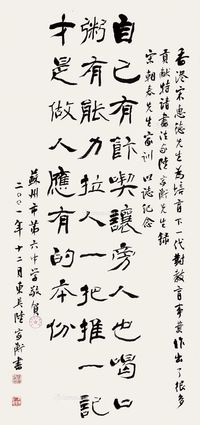 香港宋惠德先生為培育下一代對教育事業作出了很多
貢獻特請書法家陸家衡先生錄
宗朝春先生家訓 以誌紀念
自己有飦喫讓旁人也喝口
粥有能力拉人一把推一記
才是做人應有的本份
蘇州市第六中學敬贈
二〇〇一年十二月東吳陸家衡書